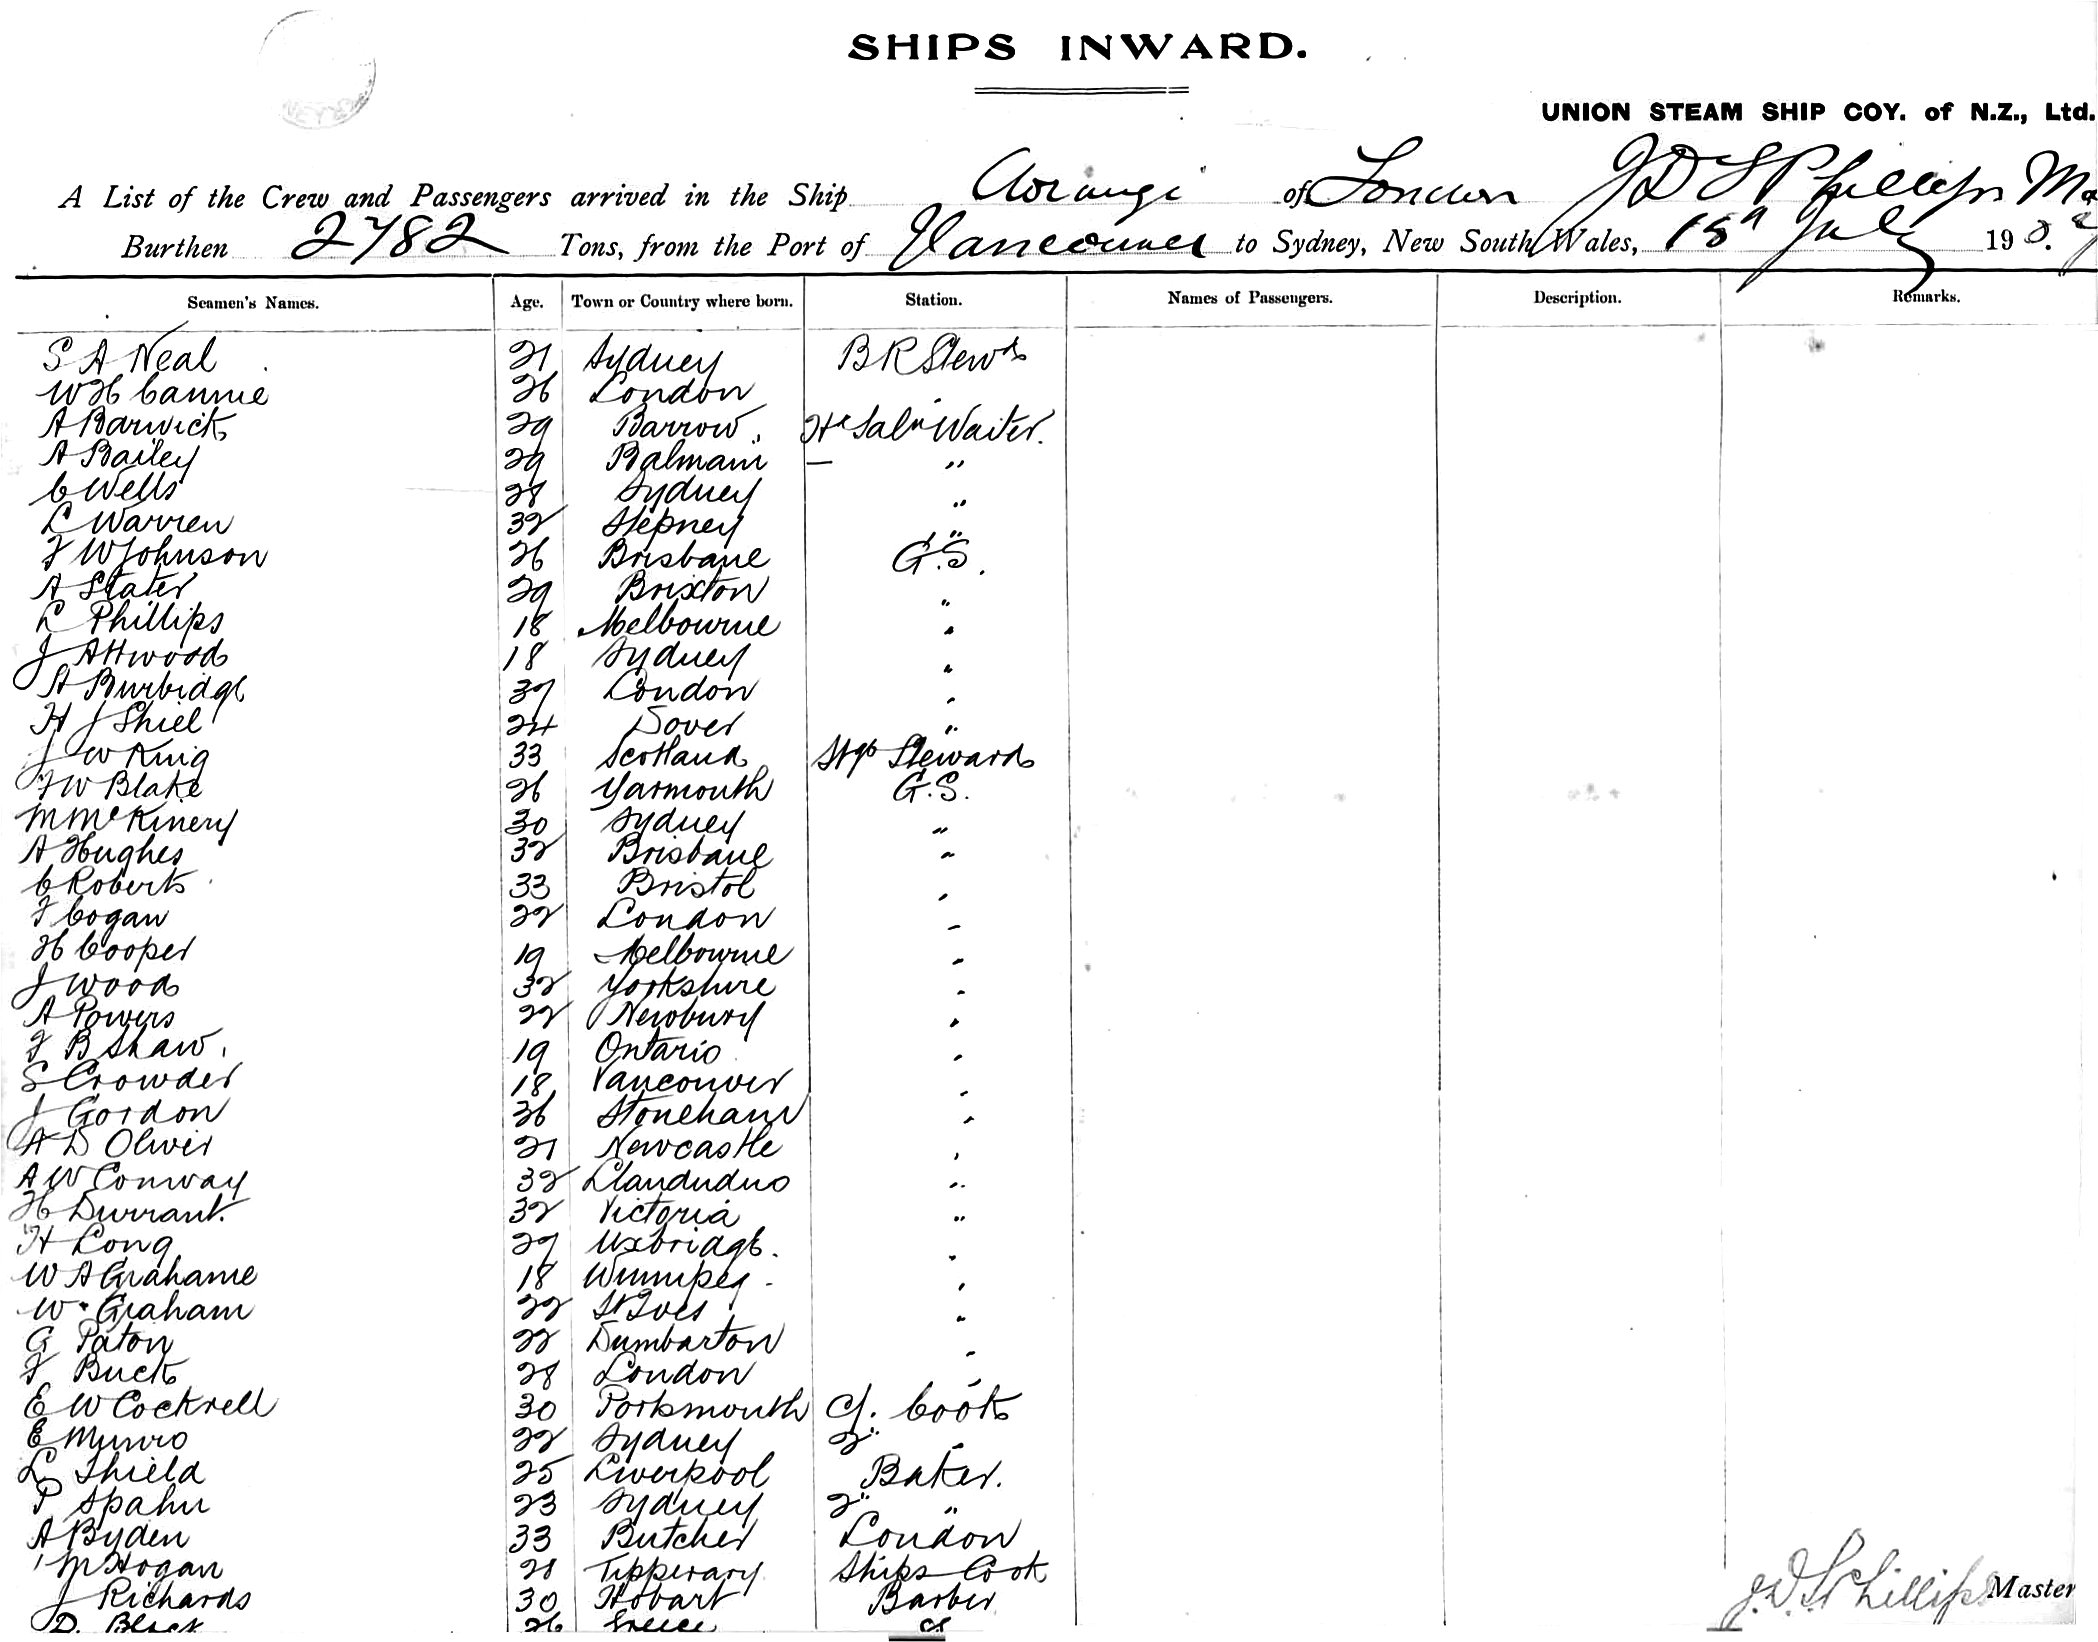 SHIPS INWARD.
UNION STEAM SHIP COY. of N.Z., Ltd.
A List of the Crew and Passengers arrived in the Ship Aorangi of London J D S Phillips Ma
Burthen 2782 Tons, from the Port of Vancouver to Sydney, New South Wales, 18th July 190
Seamen's Names. Age. Town or Country where born. Station. Names of Passengers. Description. Remarks.
S A Neal 21 Sydney B R Stewd
W H Cannie 26 London
A Barwick 29 Barrow Waiter.
A Bailey 29 Balmain — "
C Wells 28 Sydney "
L Warren 32 Stepney "
F W Johnson 26 Brisbane G.S.
A Slater 29 Brixton "
L Phillips 18 Melbourne "
J Attwood 18 Sydney "
A Burbidge 37 London "
H J Shiel 24 Dover "
J W King 33 Scotland Steward
F W Blake 26 Yarmouth G.S.
M McKinery 30 Sydney "
A Hughes 32 Brisbane "
C Roberts 33 Bristol "
F Cogan 22 London "
H Cooper 19 Melbourne "
J Wood 32 Yorkshire "
A Powers 22 Newbury "
F B Shaw. 19 Ontario "
S Crowder 18 Vancouver "
J Gordon 36 Stoneham "
A D Oliver 21 Newcastle "
A W Conway 32 Llandudno "
H Durrant. 32 Victoria "
H Long 27 Uxbridge. "
W A Grahame 18 Winnipeg "
W. Graham 22 St Ives "
G Paton 22 Dumbarton "
F Buck 28 London "
E W Cockrell 30 Portsmouth Cf. Cook
E Munro 22 Sydney 2" "
L Shield 25 Liverpool Baker.
P Spahn 23 Sydney 2" "
A Byden 33 Butcher London
M Hogan 28 Tipperary Ships Cook
J Richards 30 Hobart Barber
D. Black 26 Greece
J.D.S. Phillips Master